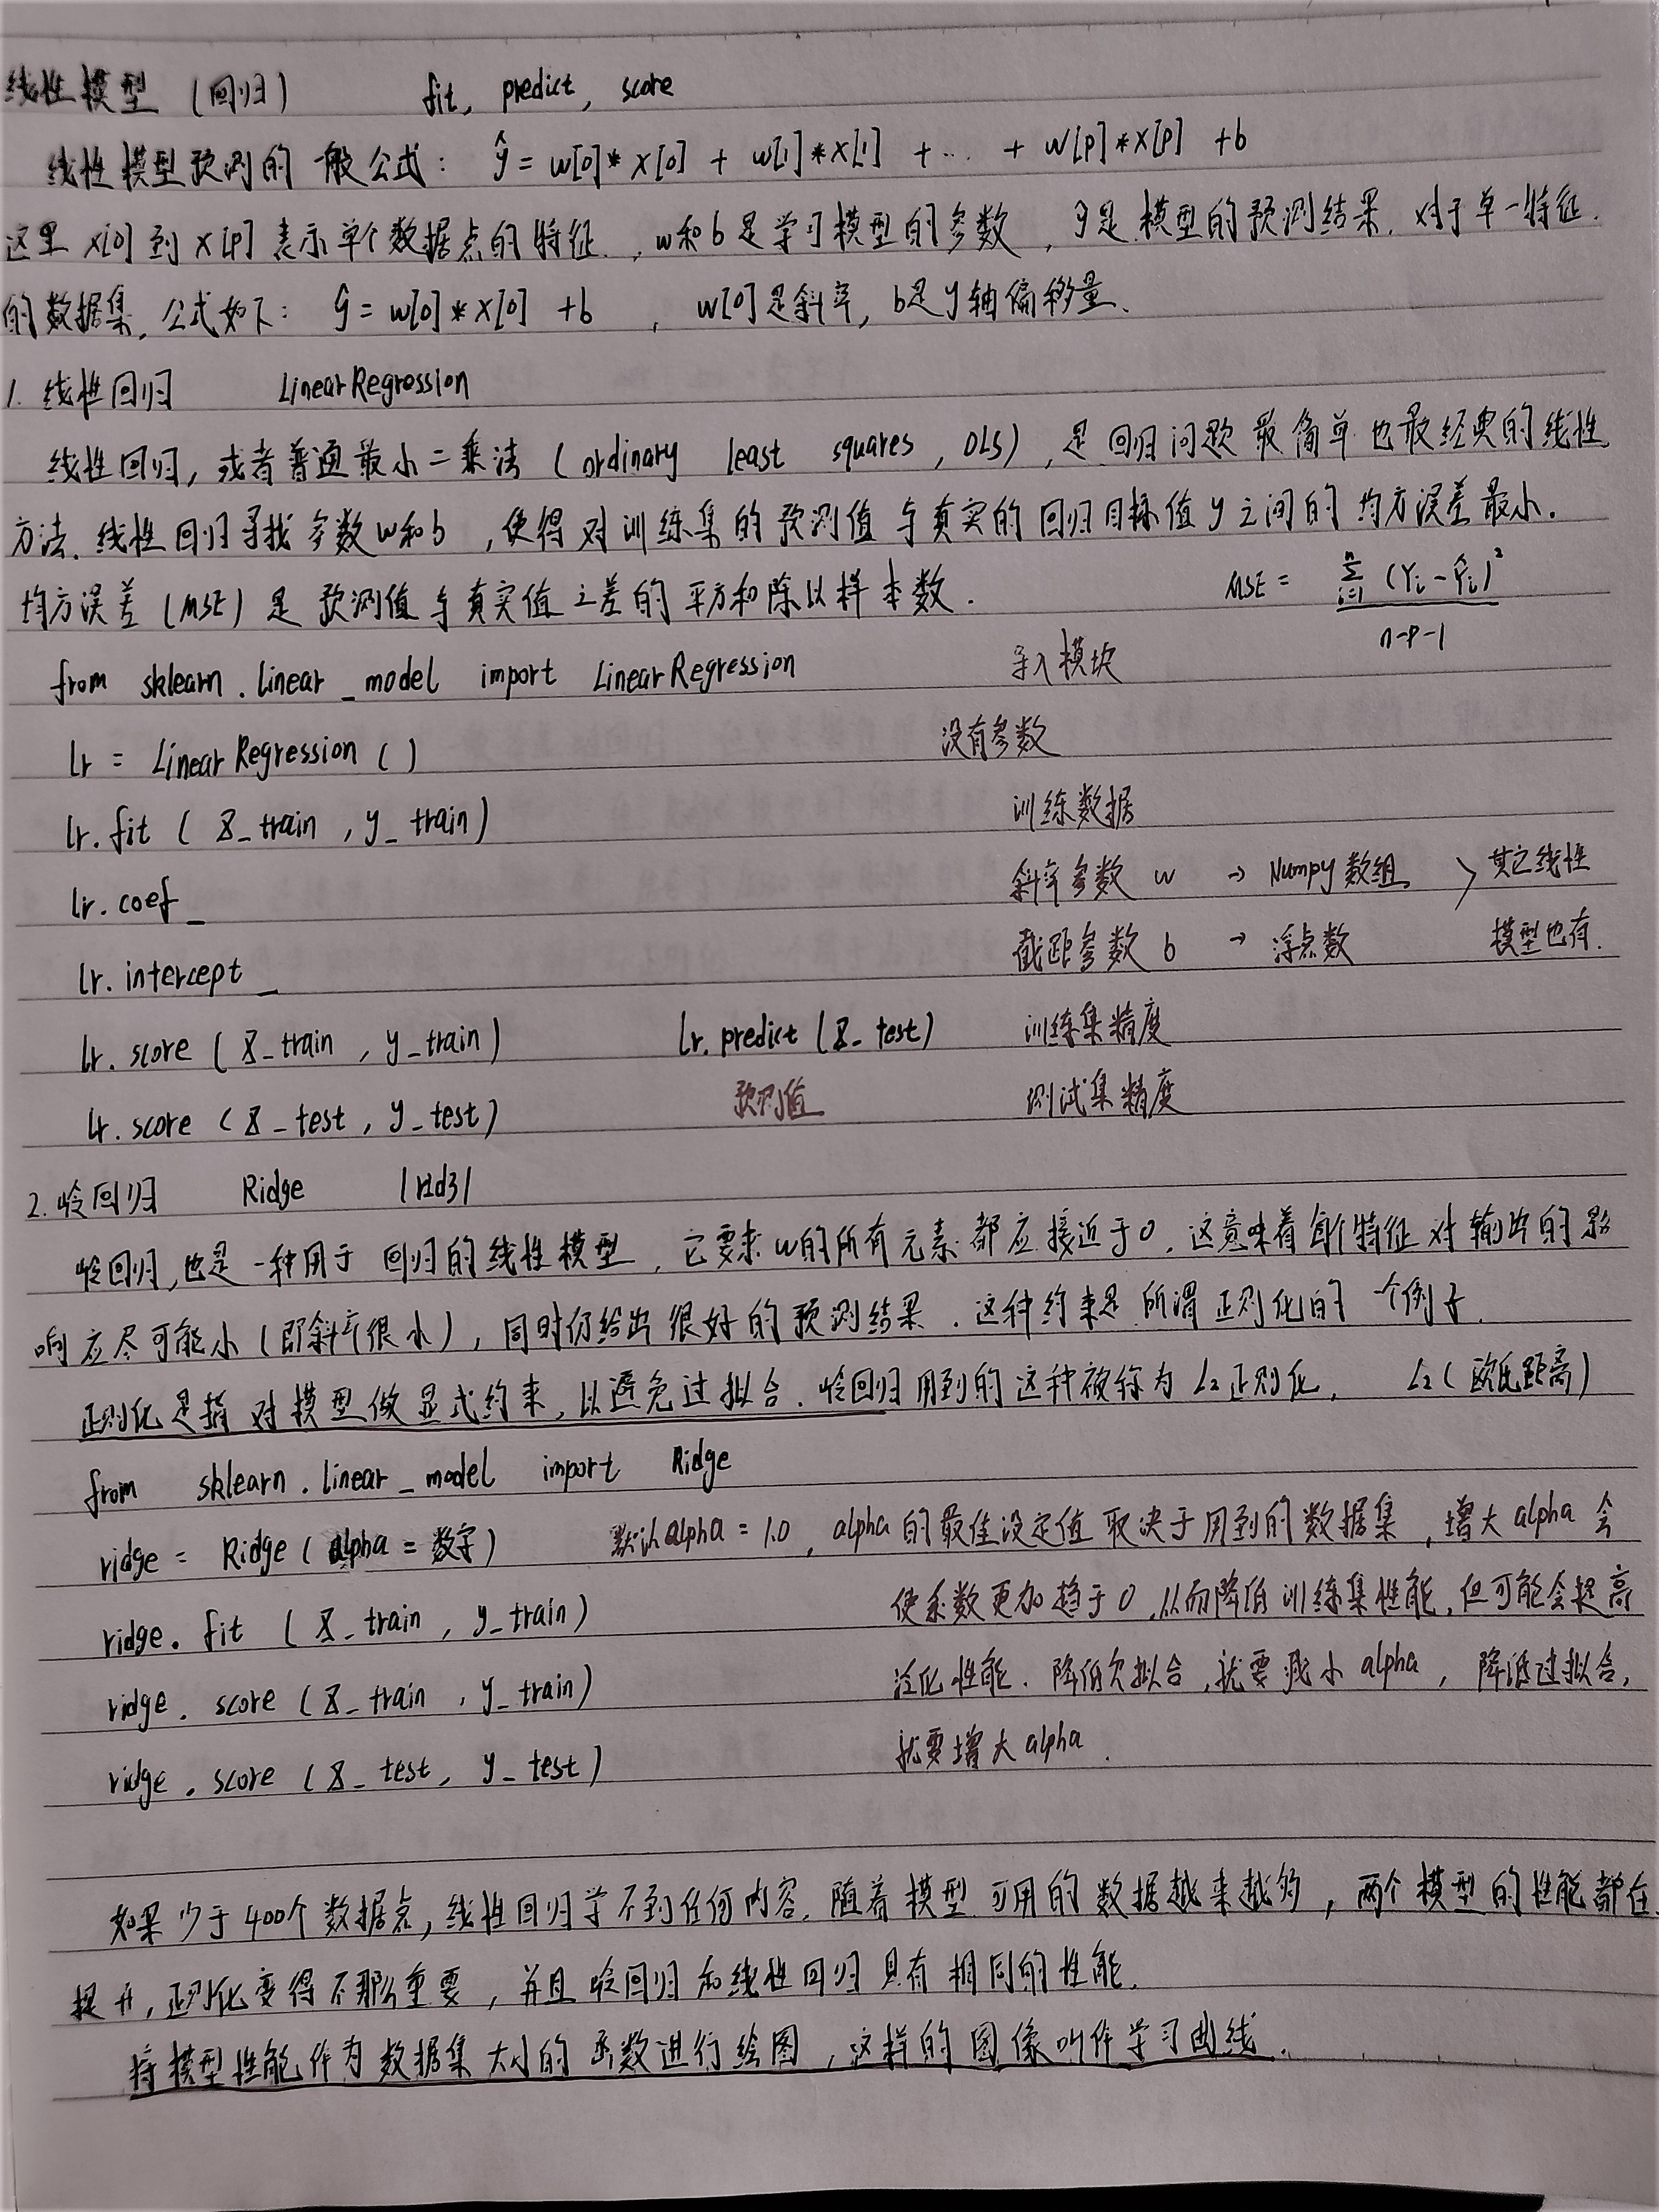 线性模型 (回归) fit, predict, score
线性模型预测的一般公式: ŷ = w[0]* x[0] + w[1]*x[1] + … + w[p]*x[p] +b
这里 x[0] 到 x[p] 表示单个数据点的特征, w和b是学习模型的参数, ŷ是模型的预测结果. 对于单一特征
的数据集, 公式如下: ŷ = w[0]*x[0] +b , w[0]是斜率, b是y轴偏移量.
1. 线性回归 LinearRegression
线性回归, 或者普通最小二乘法 (ordinary least squares, OLS), 是回归问题最简单也最经典的线性
方法. 线性回归寻找参数w和b, 使得对训练集的预测值与真实的回归目标值y之间的均方误差最小.
均方误差 (MSE) 是预测值与真实值之差的平方和除以样本数. MSE = \frac{\sum_{i=1}^{n} (Yi - Ŷi)²}{n-p-1}
from sklearn.linear_model import LinearRegression 导入模块
lr = LinearRegression () 没有参数
lr.fit ( X_train , y_train) 训练数据
lr.coef_ 斜率参数 w → Numpy数组 > 其它线性
lr.intercept_ 截距参数 b → 浮点数 模型也有.
lr.score ( X_train , y_train) lr.predict (X_test) 训练集精度
lr.score ( X_test , y_test) 预测值 测试集精度
2. 岭回归 Ridge /rɪdʒ/
岭回归, 也是一种用于回归的线性模型, 它要求w的所有元素都应接近于0. 这意味着每个特征对输出的影
响应尽可能小 (即斜率很小), 同时仍给出很好的预测结果. 这种约束是所谓正则化的一个例子.
正则化是指对模型做显式约束, 以避免过拟合. 岭回归用到的这种被称为 L2正则化. L2 (欧氏距离)
from sklearn.linear_model import Ridge
ridge = Ridge ( alpha = 数字) 默认alpha = 1.0, alpha的最佳设定值取决于用到的数据集, 增大alpha会
ridge.fit ( X_train , y_train) 使系数更加趋于0, 从而降低训练集性能, 但可能会提高
ridge.score ( X_train , y_train) 泛化性能. 降低欠拟合, 就要减小alpha, 降低过拟合,
ridge.score ( X_test , y_test) 就要增大alpha.
如果少于400个数据点, 线性回归学不到任何内容. 随着模型可用的数据越来越多, 两个模型的性能都在
提升, 正则化变得不那么重要, 并且岭回归和线性回归具有相同的性能.
将模型性能作为数据集大小的函数进行绘图, 这样的图像叫作学习曲线.